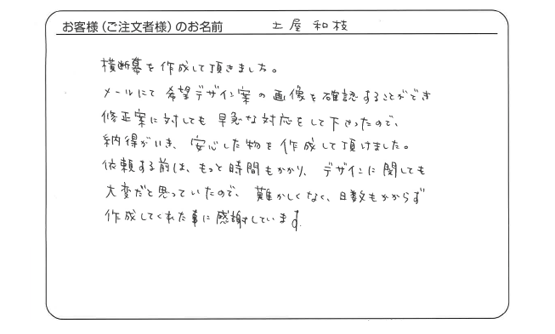 お客様（ご注文者様）のお名前　土屋 和枝
横断幕を作成して頂きました。
メールにて希望デザイン案の画像を確認することができ
修正案に対しても早急な対応をして下さったので、
納得がいき、安心した物を作成して頂けました。
依頼する前は、もっと時間もかかり、デザインに関しても
大変だと思っていたので、難かしくなく、日数もかからず
作成してくれた事に感謝しています。